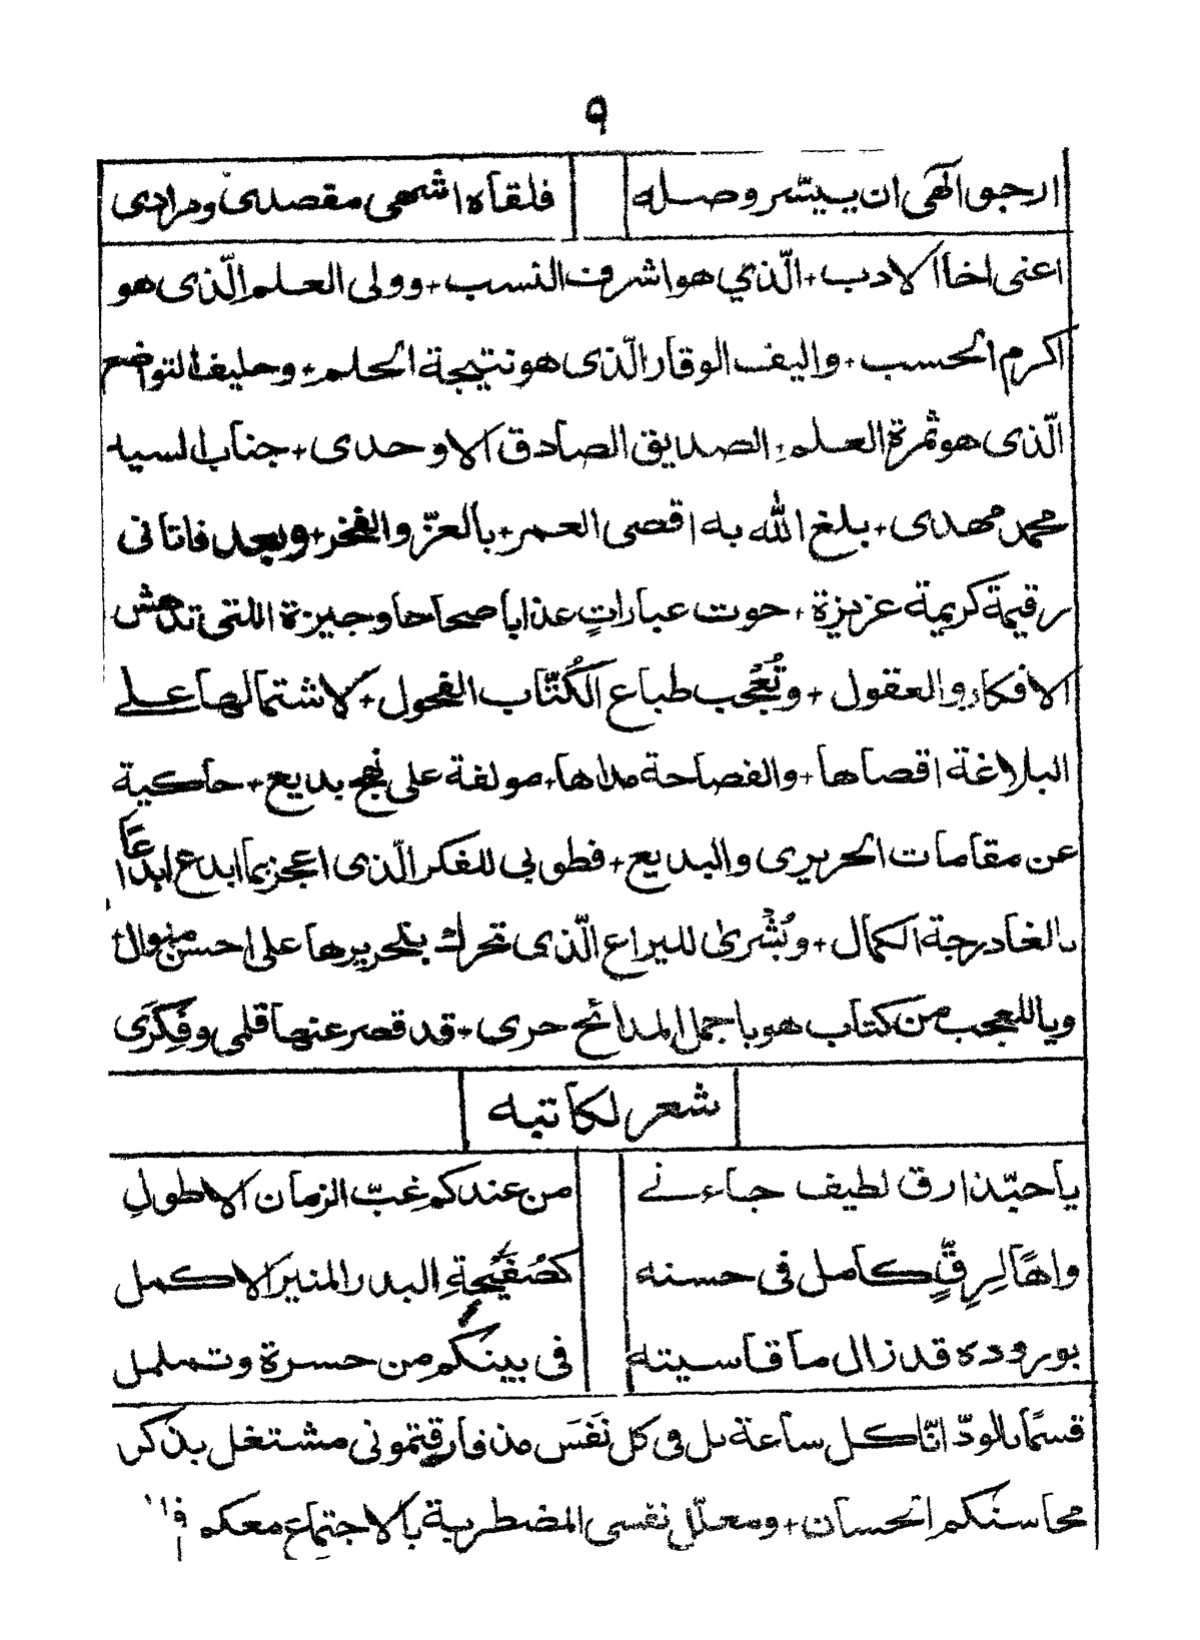 ٩
ارجو الٓهى ان ييسّر وصله فلقاه اشهى مقصدى ومرادى
اعنى اخا الادب + الّذي هو اشرف النسب + وولى العلم الّذى هو
اكرم الحسب + واليف الوقار الّذى هو نتيجة الحلم + وحليف التواضع
الّذى هو ثمرة العلم + الصديق الصادق الاوحدى + جناب السيد
محمد مهدى + بلغ الله به اقصى العمر + بالعزّ والفخر + وبعد فاتانى
رقيمة كريمة عزيزة + حوت عباراتٍ عذابا صحاحا وجيزة اللتى تدهش
الافكار والعقول + وتُعْجب طباع الكُتّاب الفحول + لاشتمالها على
البلاغة اقصاها + والفصاحة مداها + مولفة على نهج بديع + حاكية
عن مقامات الحريرى والبديع + فطوبى للفكر الّذى اعجز بما ابدع ابداعًا
بالغا درجة الكمال + وبُشْرىٰ لليراع الّذى تحرك بتحريرها على احسن منوال +
ويا للعجب من كتاب هو باجمل المدائح حرى + قد قصر عنها قلمى وفِكَرى
شعر لكاتبه
يا حبّذا رق لطيف جاءنى من عندكم غبّ الزمان الاطولِ
واهًا لِرِقٍّ كامل فى حسنه كصُفَيْحةِ البدر المنير الاكمل
بوروده قد زال ما قاسيته فى بينكم من حسرة وتململ
قسمًا بالودّ انّا كل ساعة بل فى كل نَفَسَ مذ فارقتمونى مشتغل بذكر
محاسنكم الحسان + ومعلّل نفسى المضطربة بالاجتماع معكم